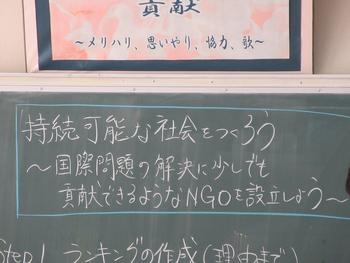 貢献
～メリハリ、思いやり、協力、歌～
持続可能な社会をつくろう
～国際問題の解決に少しでも
貢献できるようなNGOを設立しよう～
Step1 ランキングの作成(理由まで)